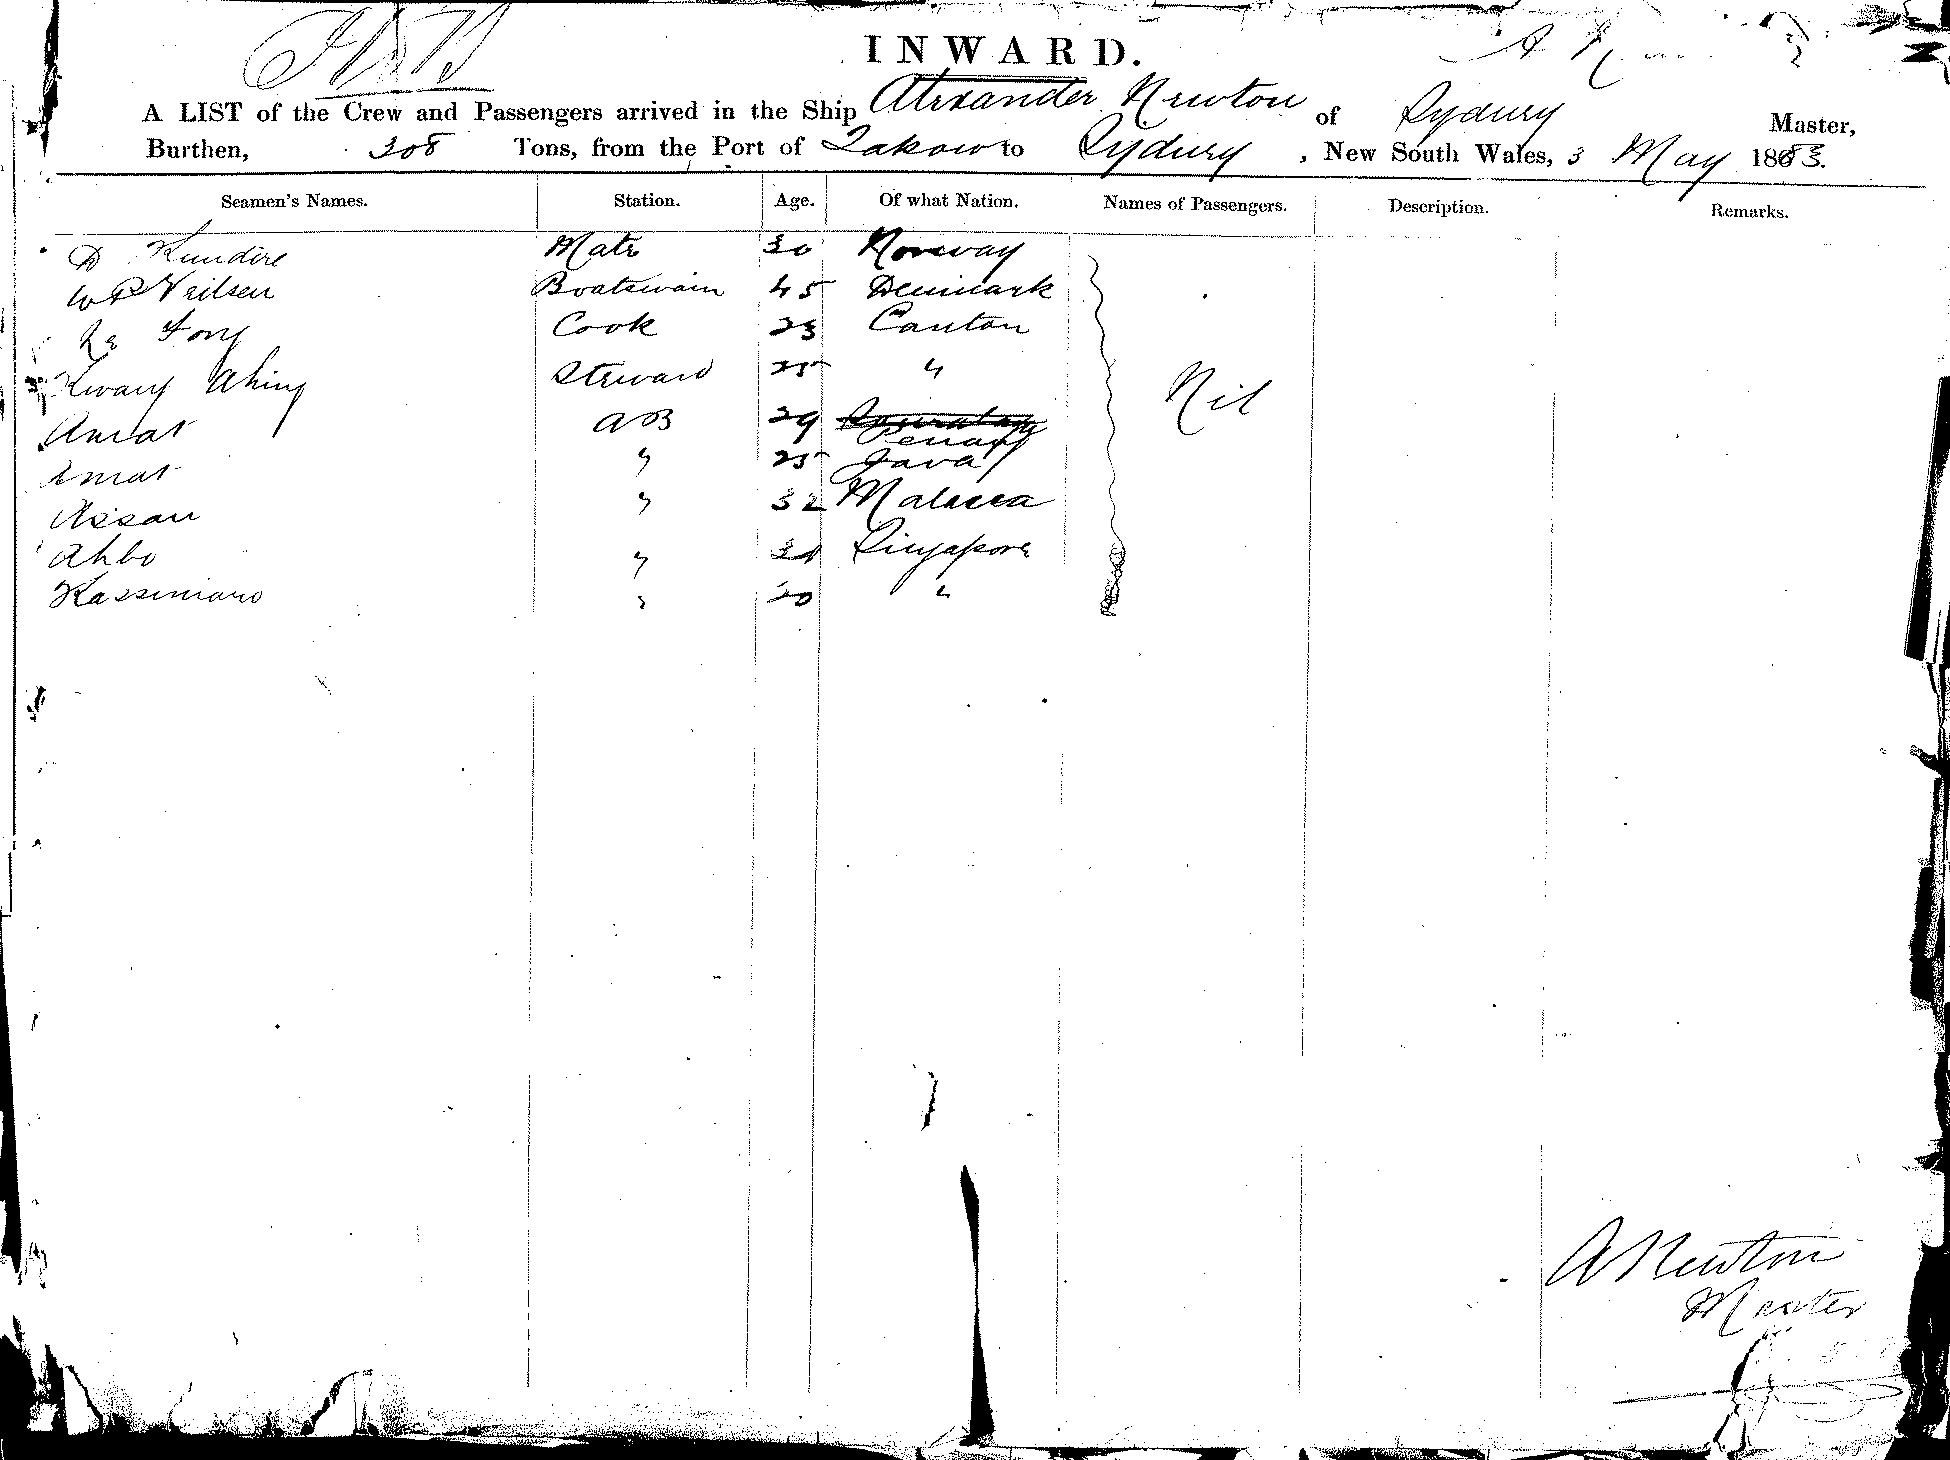 INWARD.
A LIST of the Crew and Passengers arrived in the Ship Alexander Newton of Sydney Master,
Burthen, 308 Tons, from the Port of Takow to Sydney, New South Wales, 3 May 1883.
Seamen's Names. Station. Age. Of what Nation. Names of Passengers. Description. Remarks.
Mate 30 Norway
W P Neilsen Boatswain 45 Denmark
Fong Cook 23 Canton
Kwang Ahing Steward 25 "
Amat AB 29
Penang
Amat " 25 Java
Assan " 32 Malacca
Ahbo " Singapore
" 20 "
Nil
A Newton
Master